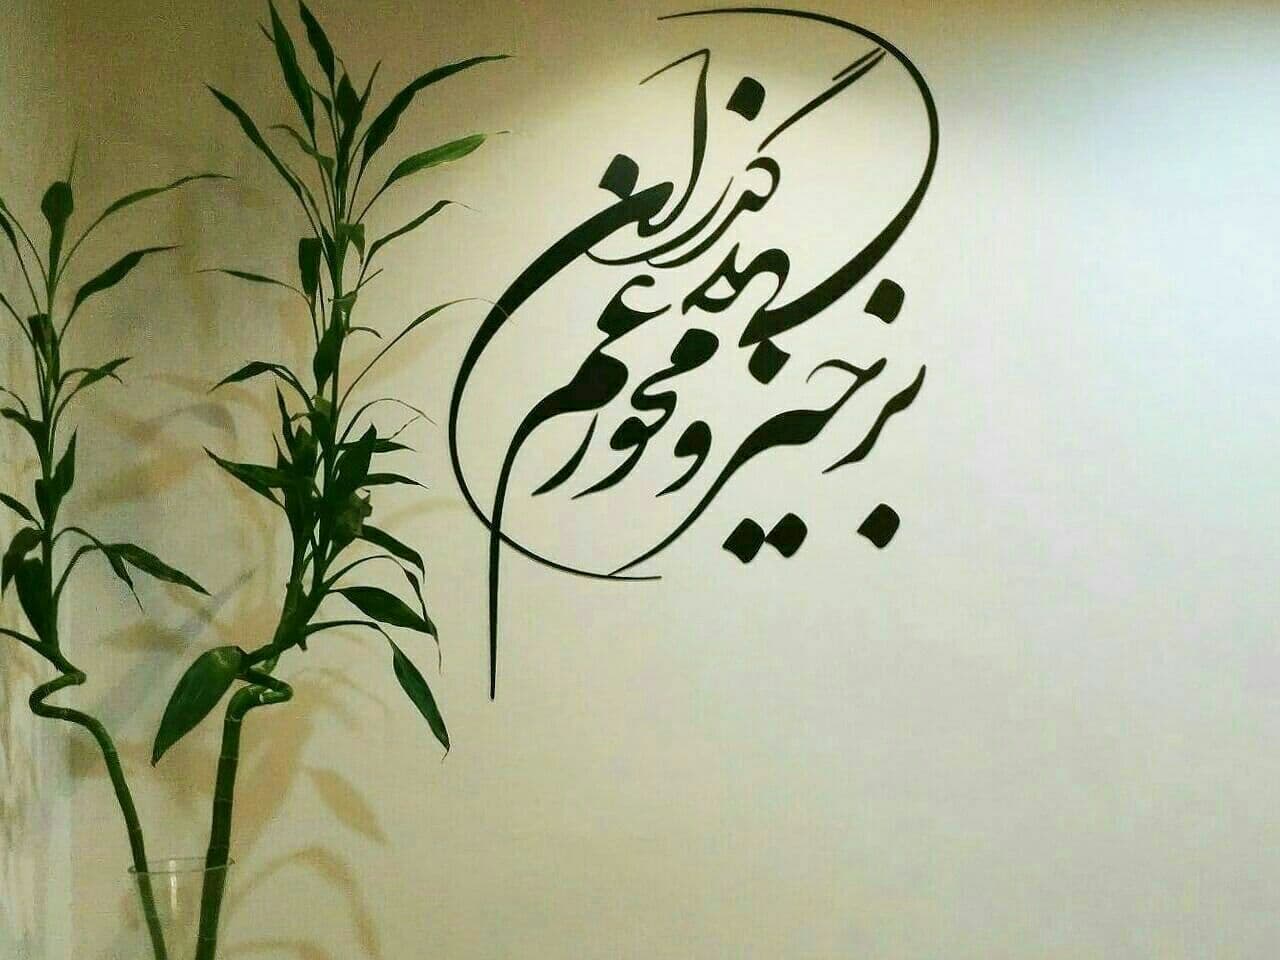 برخیز و مخور غم جهان گذران